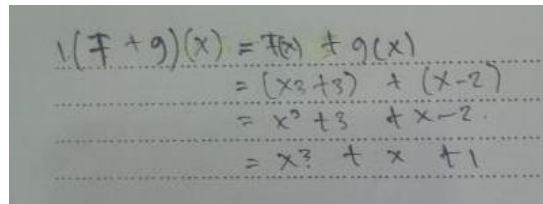 1(F + g)(x) = F(x) + g(x)
= (x3 + 3) + (x - 2)
= x³ + 3 + x - 2.
= x³ + x + 1